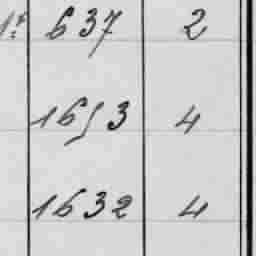 637 2
1653 4
1632 4